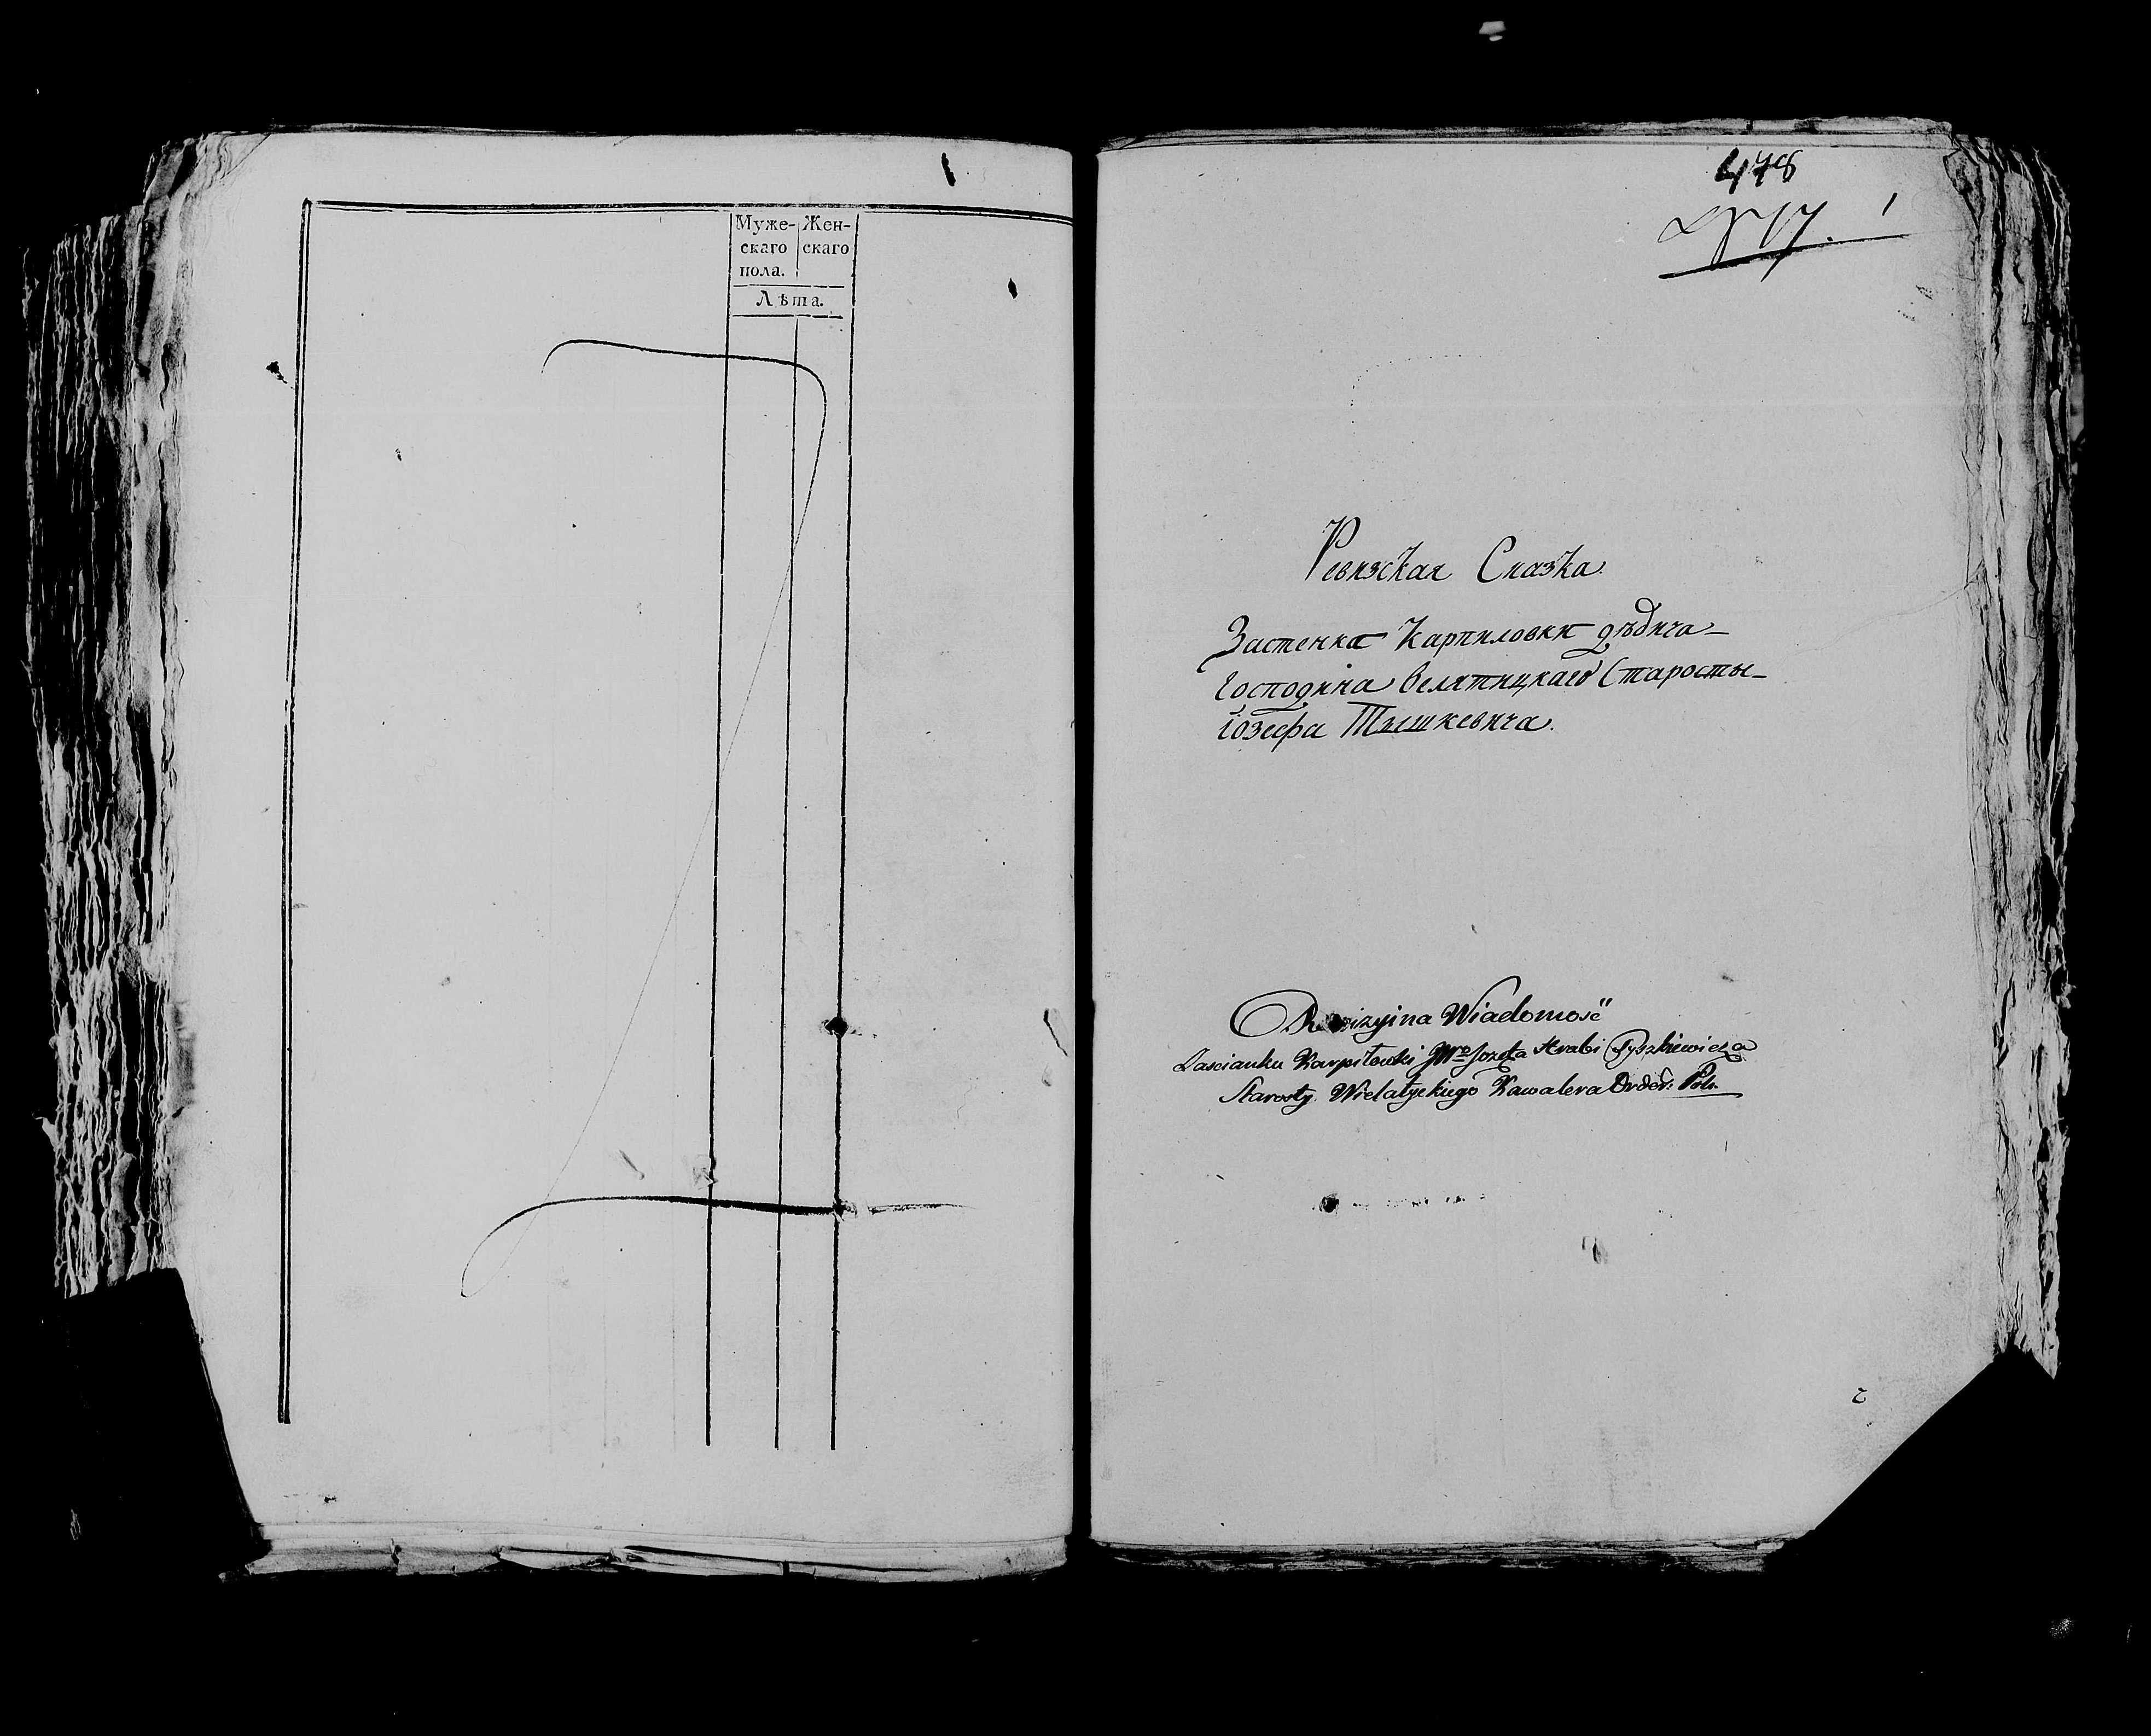 Муже- Жен-
скаго скаго
пола.
Лѣта.
478
1
Ревизская Сказка.
Застенка Карпиловки дѣдича
Господина Велятицкаго Старосты
Іозефа Тышкевича.
Rewizyina Wiadomość
Zascianku Karpiłowki JWo Jozefa Hrabi Tyszkiewicza
Starosty Wielatyckiego Kawalera Order: Pol: